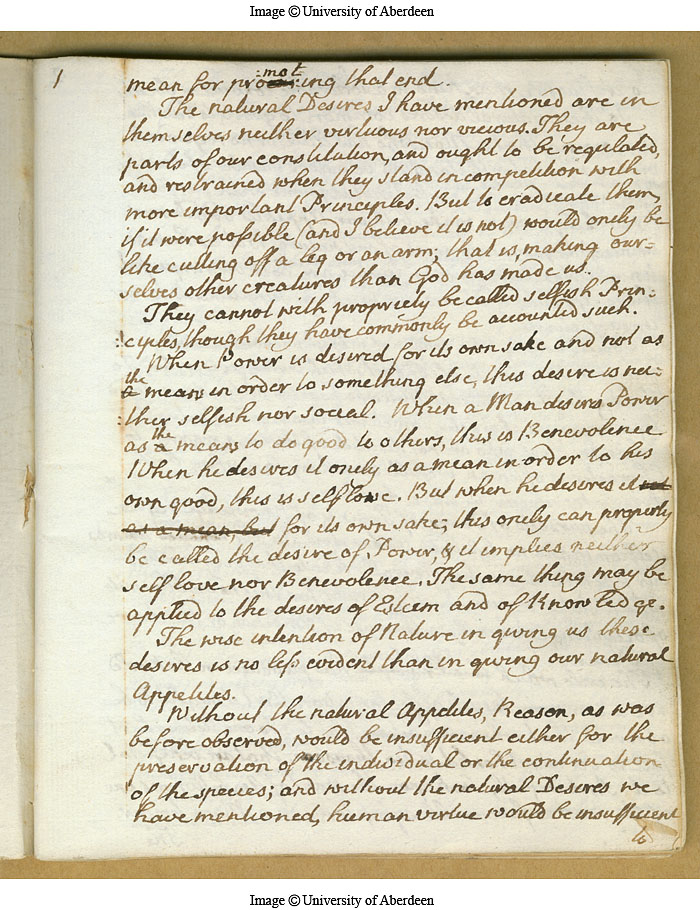 Image © University of Aberdeen
1
mot
mean for procuring that end.
The natural Desires I have mentioned are in
themselves neither virtuous nor vicious. They are
parts of our constitution, and ought to be regulated,
and restrained when they stand in competition with
more important Principles. But to eradicate them,
if it were possible (and I believe it is not) would onely be
like cutting off a leg or an arm; that is, making our=
selves other creatures than God has made us.
They cannot with propriety be called selfish Prin=
:ciples, though they have commonly be accounted such.
When Power is desired for its own sake and not as
the
a means in order to something else, this desire is nei=
:ther selfish nor social. When a Man desires Power
the
as a means to do good to others, this is Benevolence
When he desires it onely as a mean in order to his
own good, this is self love. But when he desires it not
as a mean, but for its own sake; this onely can properly
be called the desire of Power, & it implies neither
self love nor Benevolence. The same thing may be
applied to the desires of Esteem and of Knowledge.
The wise intention of Nature in giving us these
desires is no less evident than in giving our natural
Appetites.
Without the natural Appetites, Reason, as was
before observed, would be insufficient either for the
preservation of the individual or the continuation
of the species; and without the natural Desires we
have mentioned, human virtue would be insufficient
Image © University of Aberdeen